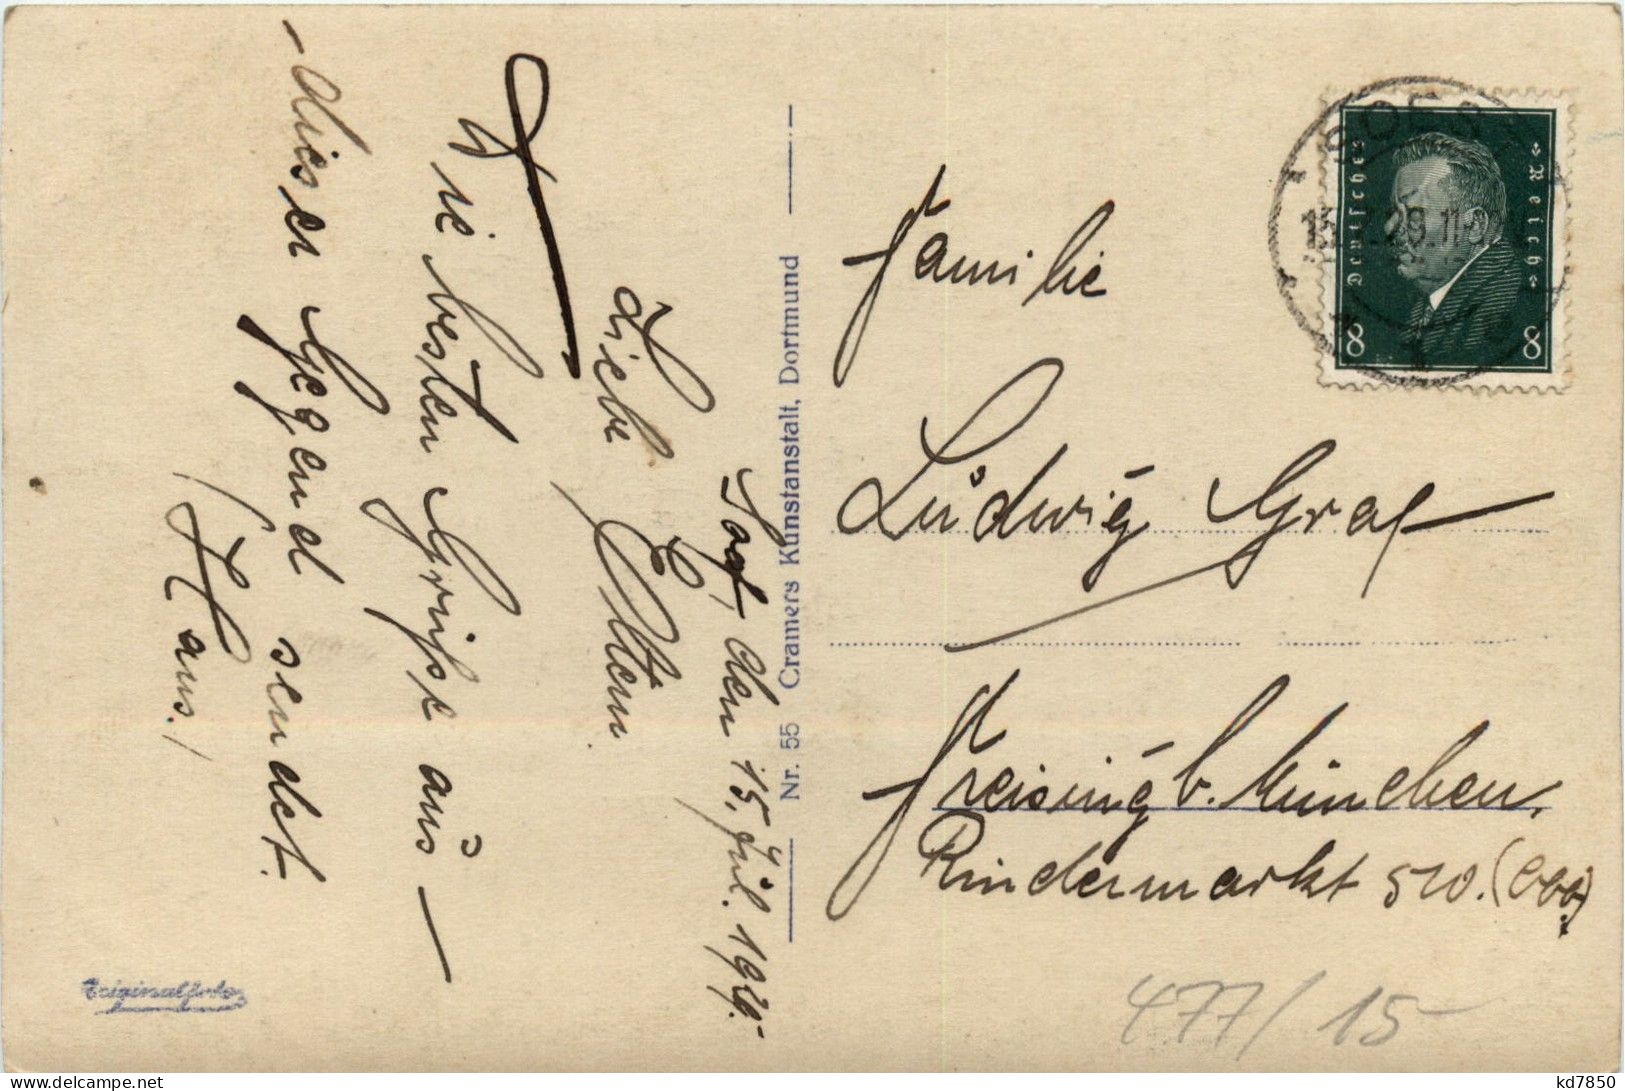 Soest, den 15. Jul. 1929.
Liebe Eltern
Die besten Grüsse aus
dieser Gegend sendet.
Hans.
Nr. 55 Cramers Kunstanstalt, Dortmund
Familie
Ludwig Graf
Freising b. München.
Rindermarkt 510.
Deutsches Reich
8 8
SOEST
Originalfoto
477/15
kd7850